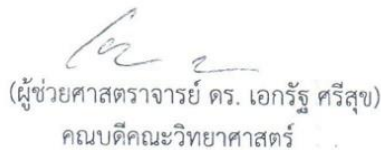 (ผู้ช่วยศาสตราจารย์ ดร. เอกรัฐ ศรีสุข)
คณบดีคณะวิทยาศาสตร์